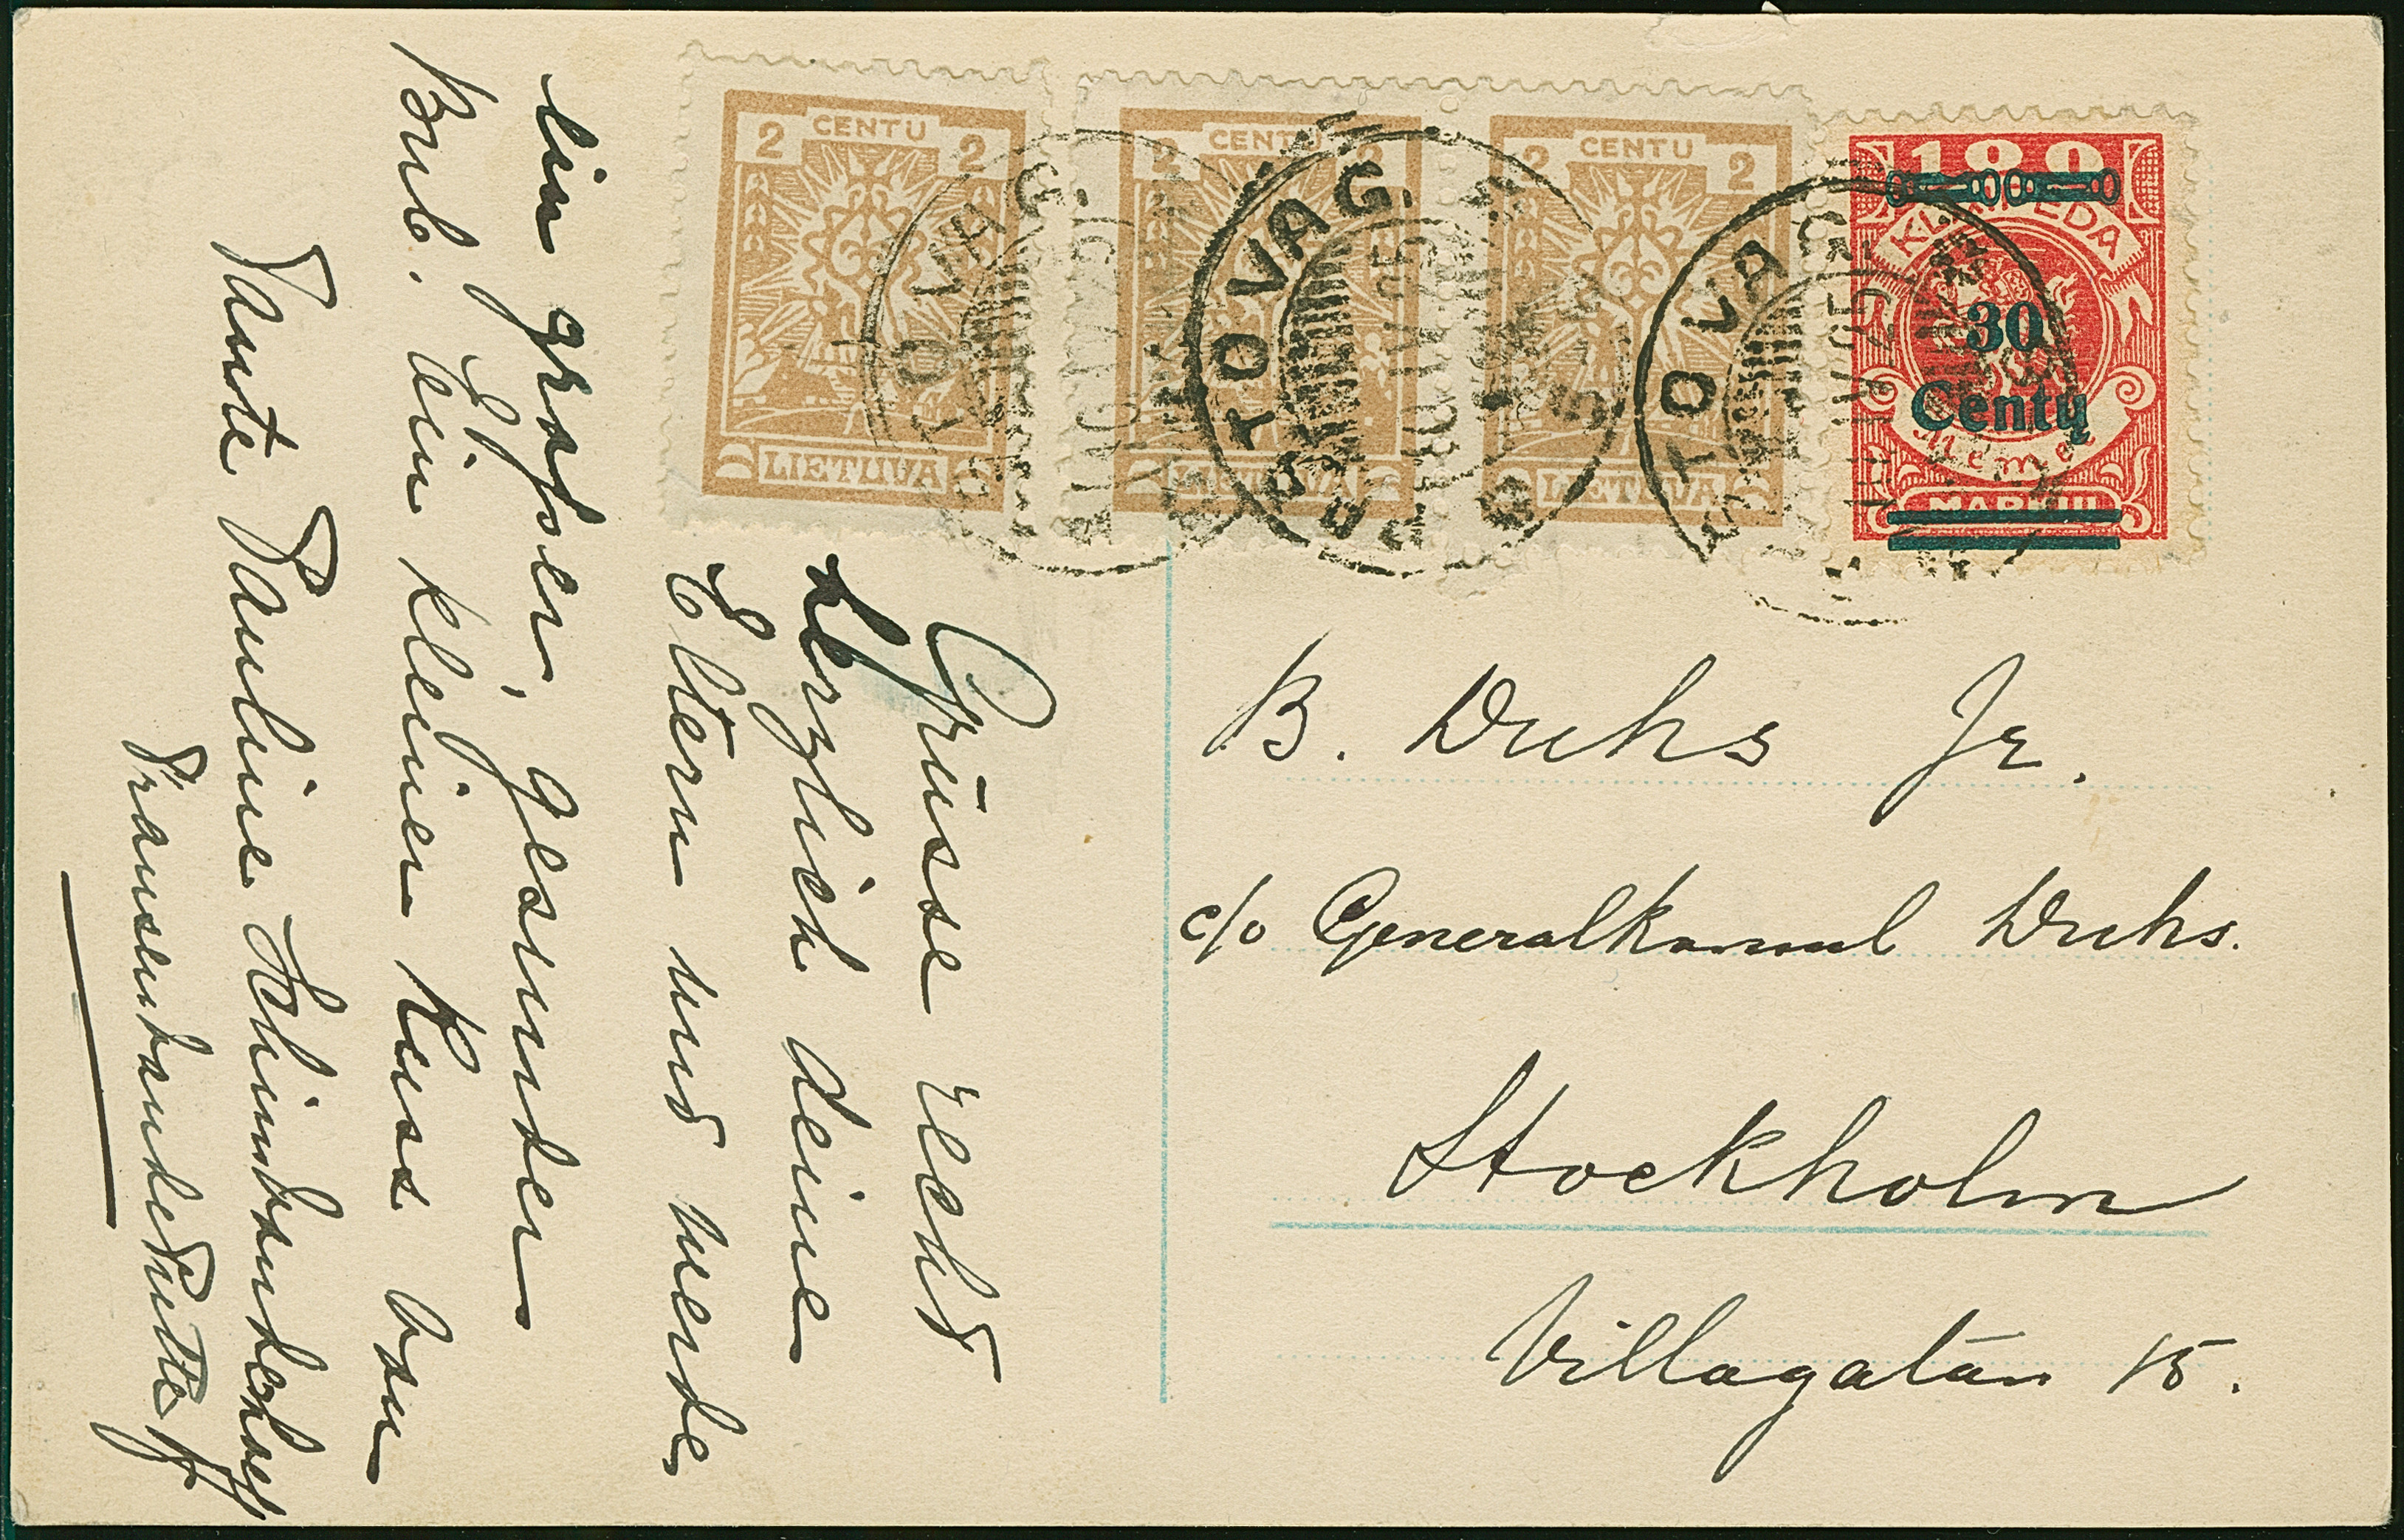 2 CENTU 2
LIETUVA
2 CENTU 2
LIETUVA
2 CENTU 2
LIETUVA
100
KLAIPEDA
30
Centų
Memel
MARKIŲ
TOVAG.
TOVAG.
TOVAG.
Grüsse recht
herzlich deine
Eltern und werde
ein grosser, gesunder
Bub. Ein kleiner Kuss von
Tante Pauline
B. Duhs Jr.
c/o Generalkonsul Duhs.
Stockholm
Villagatan 15.